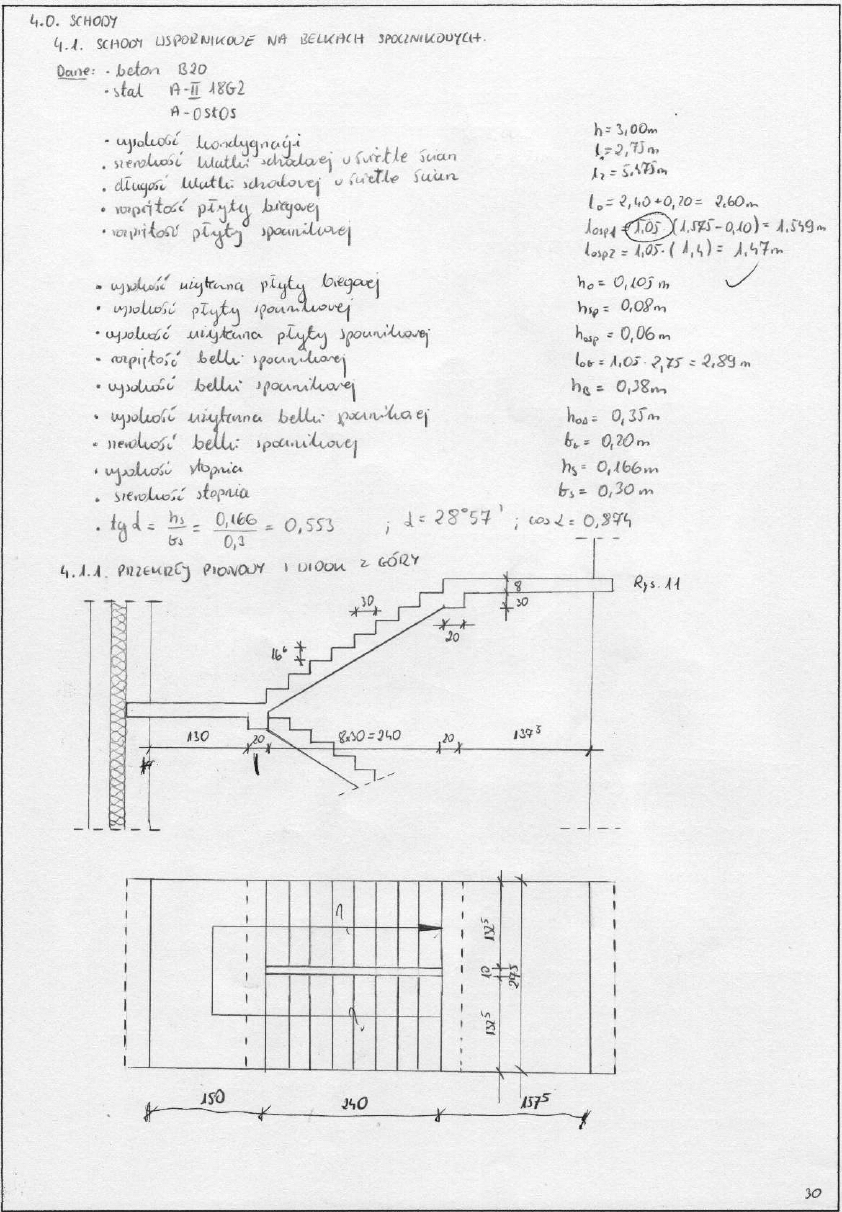 4.0. SCHODY
4.1. SCHODY WSPORNIKOWE NA BELKACH SPOCZNIKOWYCH.
Dane: · beton B20
· stal A-II 18G2
A-0 StOS
· wysokość kondygnacji h = 3,00m
· szerokość klatki schodowej w świetle ścian l = 2,75m
· długość klatki schodowej w świetle ścian l2 = 5,475m
· rozpiętość płyty biegowej l0 = 2,40+0,20 = 2,60m
· rozpiętość płyty spocznikowej losp1 = 1,05 (1,575-0,10) = 1,549m
losp2 = 1,05·(1,4) = 1,47m
· wysokość użyteczna płyty biegowej h0 = 0,105m
· wysokość płyty spocznikowej hsp = 0,08m
· wysokość użyteczna płyty spocznikowej hosp = 0,06m
· rozpiętość belki spocznikowej l0b = 1,05·2,75 = 2,89m
· wysokość belki spocznikowej hB = 0,38m
· wysokość użyteczna belki spocznikowej h0B = 0,35m
· szerokość belki spocznikowej bb = 0,20m
· wysokość stopnia hs = 0,166m
· szerokość stopnia bs = 0,30m
· tg α = hs/bs = 0,166/0,3 = 0,553 ; α = 28°57' ; cos α = 0,874
4.1.1. PRZEKRÓJ PIONOWY I WIDOK Z GÓRY
Rys. 11
8
30
30
20
16⁶
130 20 8x30=240 20 137⁵
132⁵
10
275
132⁵
150 240 157⁵
30